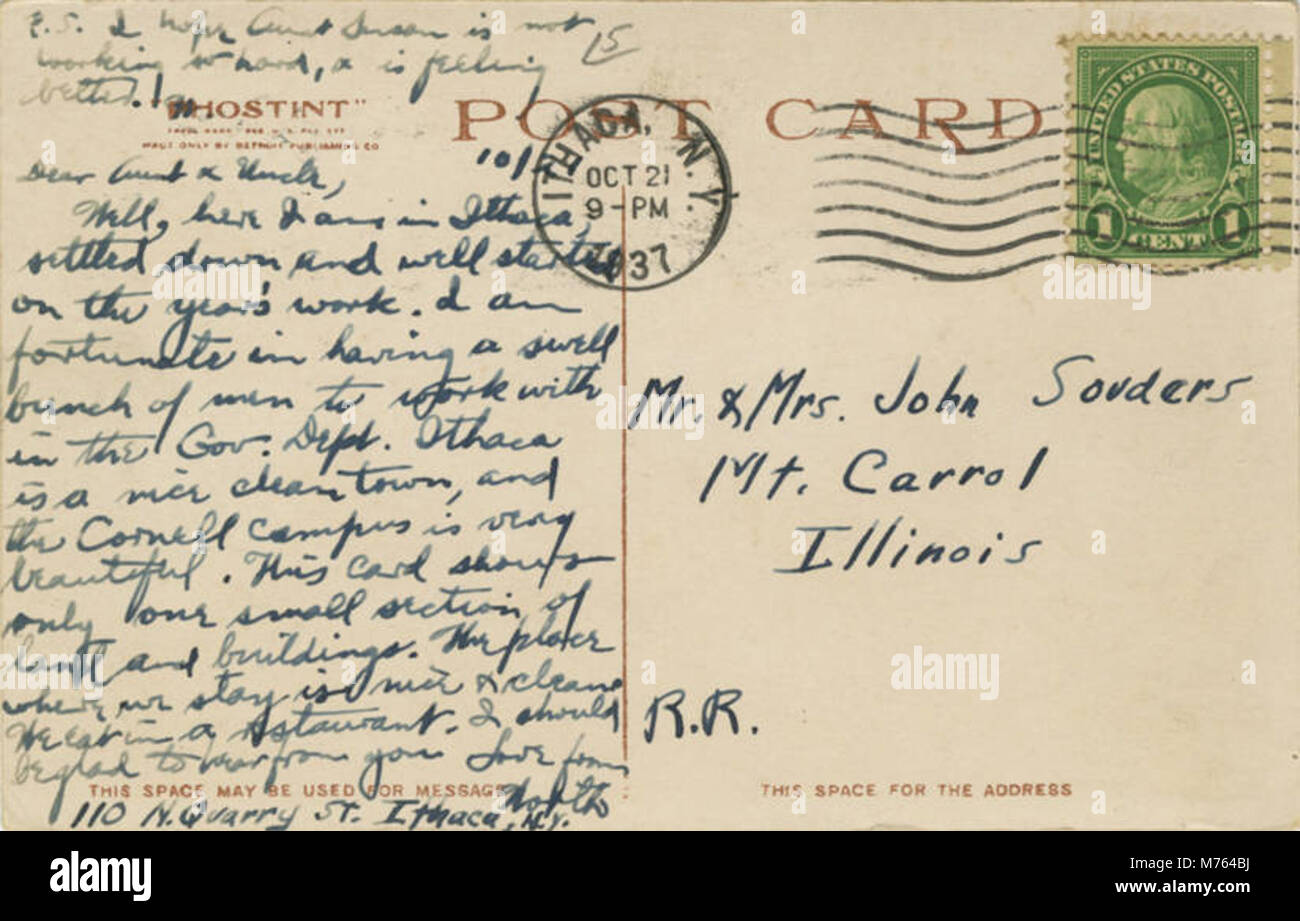 P.S. I hope Aunt Susan is not
working so hard, & is feeling
better! N.
15
"PHOSTINT"
TRADE MARK REG. U.S. PAT. OFF.
MADE ONLY BY DETROIT PUBLISHING CO
POST CARD
ITHACA, N.Y.
OCT 21
9-PM
1937
UNITED STATES POSTAGE
1 CENT 1
10/
Dear Aunt & Uncle,
Well, here I am in Ithaca,
settled down and well started
on the year's work. I am
fortunate in having a swell
bunch of men to work with
in the Gov. Dept. Ithaca
is a nice clean town, and
the Cornell campus is very
beautiful. This card shows
only one small section of
land and buildings. The place
where we stay is nice & clean.
We eat in a restaurant. I should
be glad to hear from you Love from
110 N. Quarry St. Ithaca, N.Y.
THIS SPACE MAY BE USED FOR MESSAGE
Mr. & Mrs. John Souders
Mt. Carrol
Illinois
R.R.
THIS SPACE FOR THE ADDRESS
alamy
alamy stock photo
M764BJ
www.alamy.com